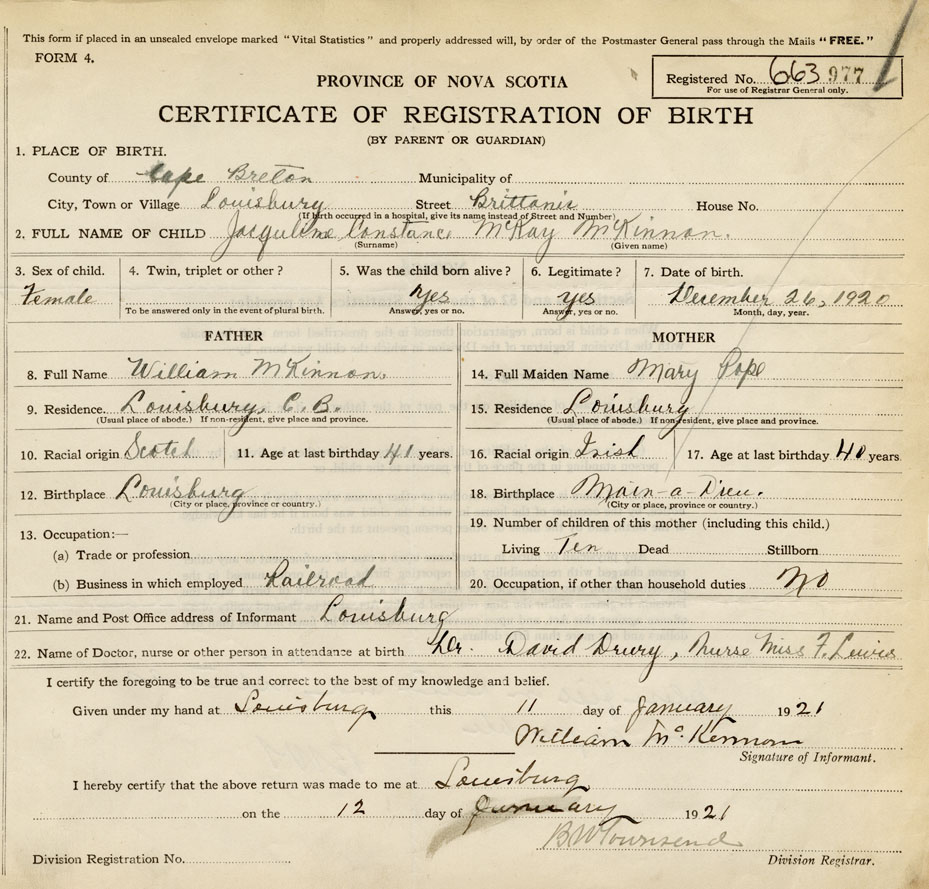 This form if placed in an unsealed envelope marked "Vital Statistics" and properly addressed will, by order of the Postmaster General pass through the Mails "FREE."
FORM 4.
Registered No. 663 977
For use of Registrar General only.
PROVINCE OF NOVA SCOTIA
CERTIFICATE OF REGISTRATION OF BIRTH
(BY PARENT OR GUARDIAN)
1. PLACE OF BIRTH.
County of Cape Breton Municipality of
City, Town or Village Louisburg Street Brittanis House No.
(If birth occurred in a hospital, give its name instead of Street and Number)
2. FULL NAME OF CHILD Jacquline Constance McKay McKinnon.
(Surname) (Given name)
3. Sex of child. 4. Twin, triplet or other? 5. Was the child born alive? 6. Legitimate? 7. Date of birth.
Female Yes yes December 26, 1920
To be answered only in the event of plural birth. Answer, yes or no. Answer, yes or no. Month, day, year.
FATHER MOTHER
8. Full Name William McKinnon. 14. Full Maiden Name Mary Pope
9. Residence. Louisburg, C.B. 15. Residence Louisburg
(Usual place of abode.) If non-resident, give place and province. (Usual place of abode.) If non-resident, give place and province.
10. Racial origin Scotch 11. Age at last birthday 41 years. 16. Racial origin Irish 17. Age at last birthday 40 years
12. Birthplace Louisburg 18. Birthplace Main-a-Dieu.
(City or place, province or country.) (City or place, province or country.)
19. Number of children of this mother (including this child.)
13. Occupation:—
(a) Trade or profession Living Ten Dead Stillborn
(b) Business in which employed Railroad 20. Occupation, if other than household duties No
21. Name and Post Office address of Informant Louisburg
22. Name of Doctor, nurse or other person in attendance at birth Dr. David Drury, Nurse Miss F. Lewis
I certify the foregoing to be true and correct to the best of my knowledge and belief.
Given under my hand at Louisburg this 11 day of January 1921
William McKennon
Signature of Informant.
I hereby certify that the above return was made to me at Louisburg
on the 12 day of January 1921
B W Townsend
Division Registration No. Division Registrar.